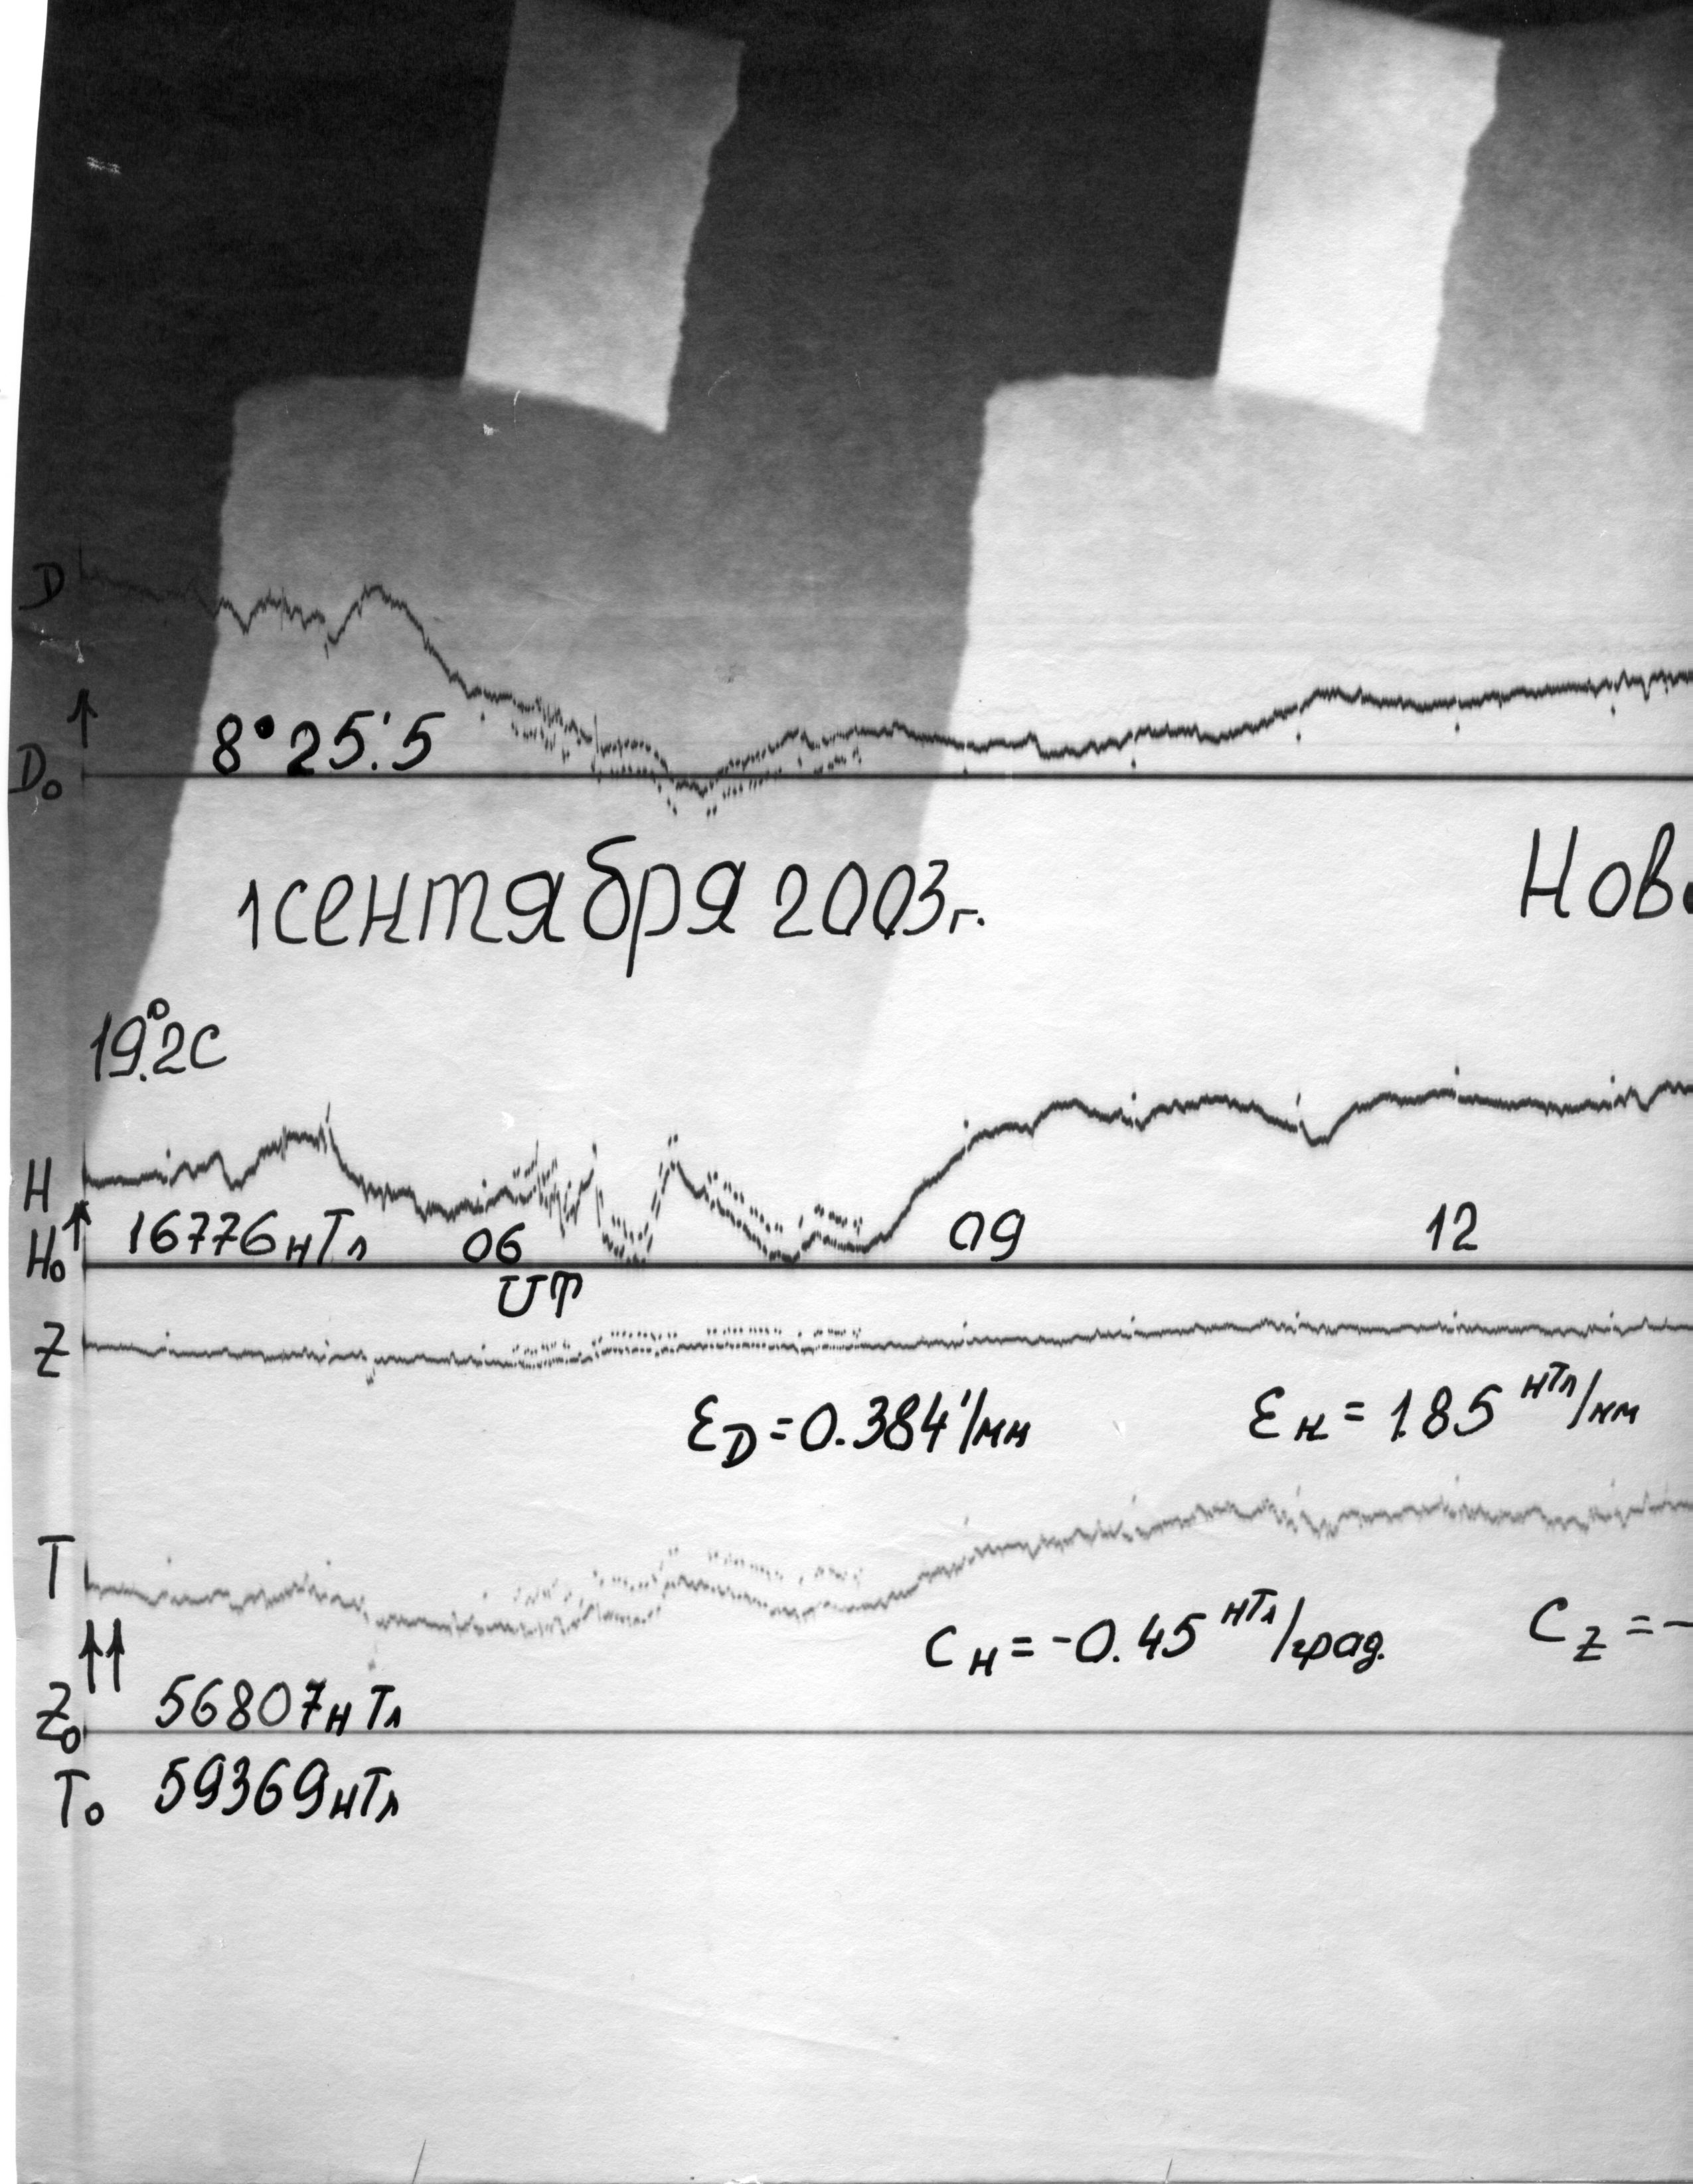 D
8°25'.5
D₀
1 сентября 2003г.
Нов
19°.2C
H
16776нТл 06 09 12
H₀
UT
Z
ε_D=0.384'/мм ε_H=1.85 нТл/мм
T
C_H=-0.45 нТл/град. C_Z=-
Z₀ 56807нТл
T₀ 59369нТл